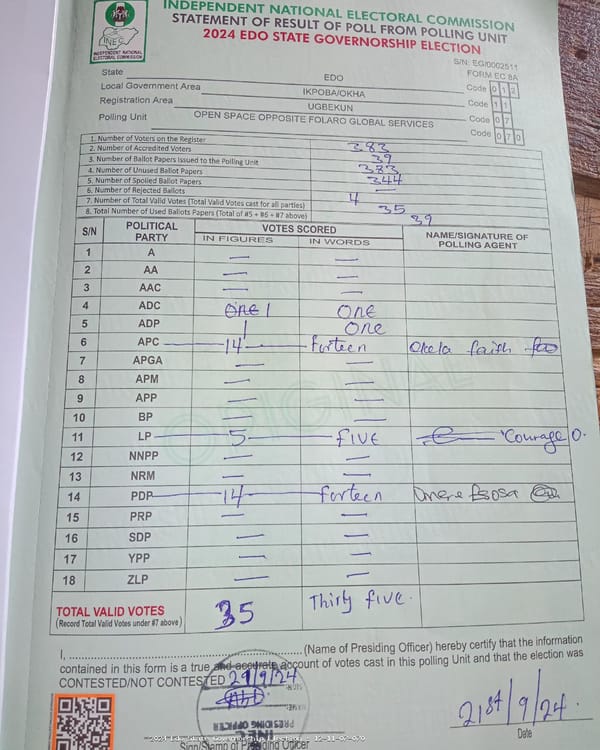 INDEPENDENT NATIONAL ELECTORAL COMMISSION
STATEMENT OF RESULT OF POLL FROM POLLING UNIT
2024 EDO STATE GOVERNORSHIP ELECTION
INEC
INDEPENDENT NATIONAL ELECTORAL COMMISSION
S/N: EG/0002511
FORM EC 8A
State EDO Code 0 1 2
Local Government Area IKPOBA/OKHA Code 1 1
Registration Area UGBEKUN Code 0 7
Polling Unit OPEN SPACE OPPOSITE FOLARO GLOBAL SERVICES Code 0 7 0
1. Number of Voters on the Register 383
2. Number of Accredited Voters 39
3. Number of Ballot Papers Issued to the Polling Unit 383
4. Number of Unused Ballot Papers 344
5. Number of Spoiled Ballot Papers —
6. Number of Rejected Ballots 4
7. Number of Total Valid Votes (Total Valid Votes cast for all parties) 35
8. Total Number of Used Ballots Papers (Total of #5 + #6 + #7 above) 39
S/N POLITICAL PARTY VOTES SCORED NAME/SIGNATURE OF POLLING AGENT
IN FIGURES IN WORDS
1 A — —
2 AA — —
3 AAC — —
4 ADC one 1 one
5 ADP 1 one
6 APC 14 forteen Okela faith
7 APGA — —
8 APM — —
9 APP — —
10 BP — —
11 LP 5 five Courage O.
12 NNPP — —
13 NRM — —
14 PDP 14 forteen Omere Esosa
15 PRP — —
16 SDP — —
17 YPP — —
18 ZLP — —
TOTAL VALID VOTES 35 Thirty five.
(Record Total Valid Votes under #7 above)
ORIGINAL
I, (Name of Presiding Officer) hereby certify that the information
contained in this form is a true and accurate account of votes cast in this polling Unit and that the election was
CONTESTED/NOT CONTESTED 21/9/24
PRESIDING OFFICER
INEC
21st/9/24
Sign/Stamp of Presiding Officer
Date